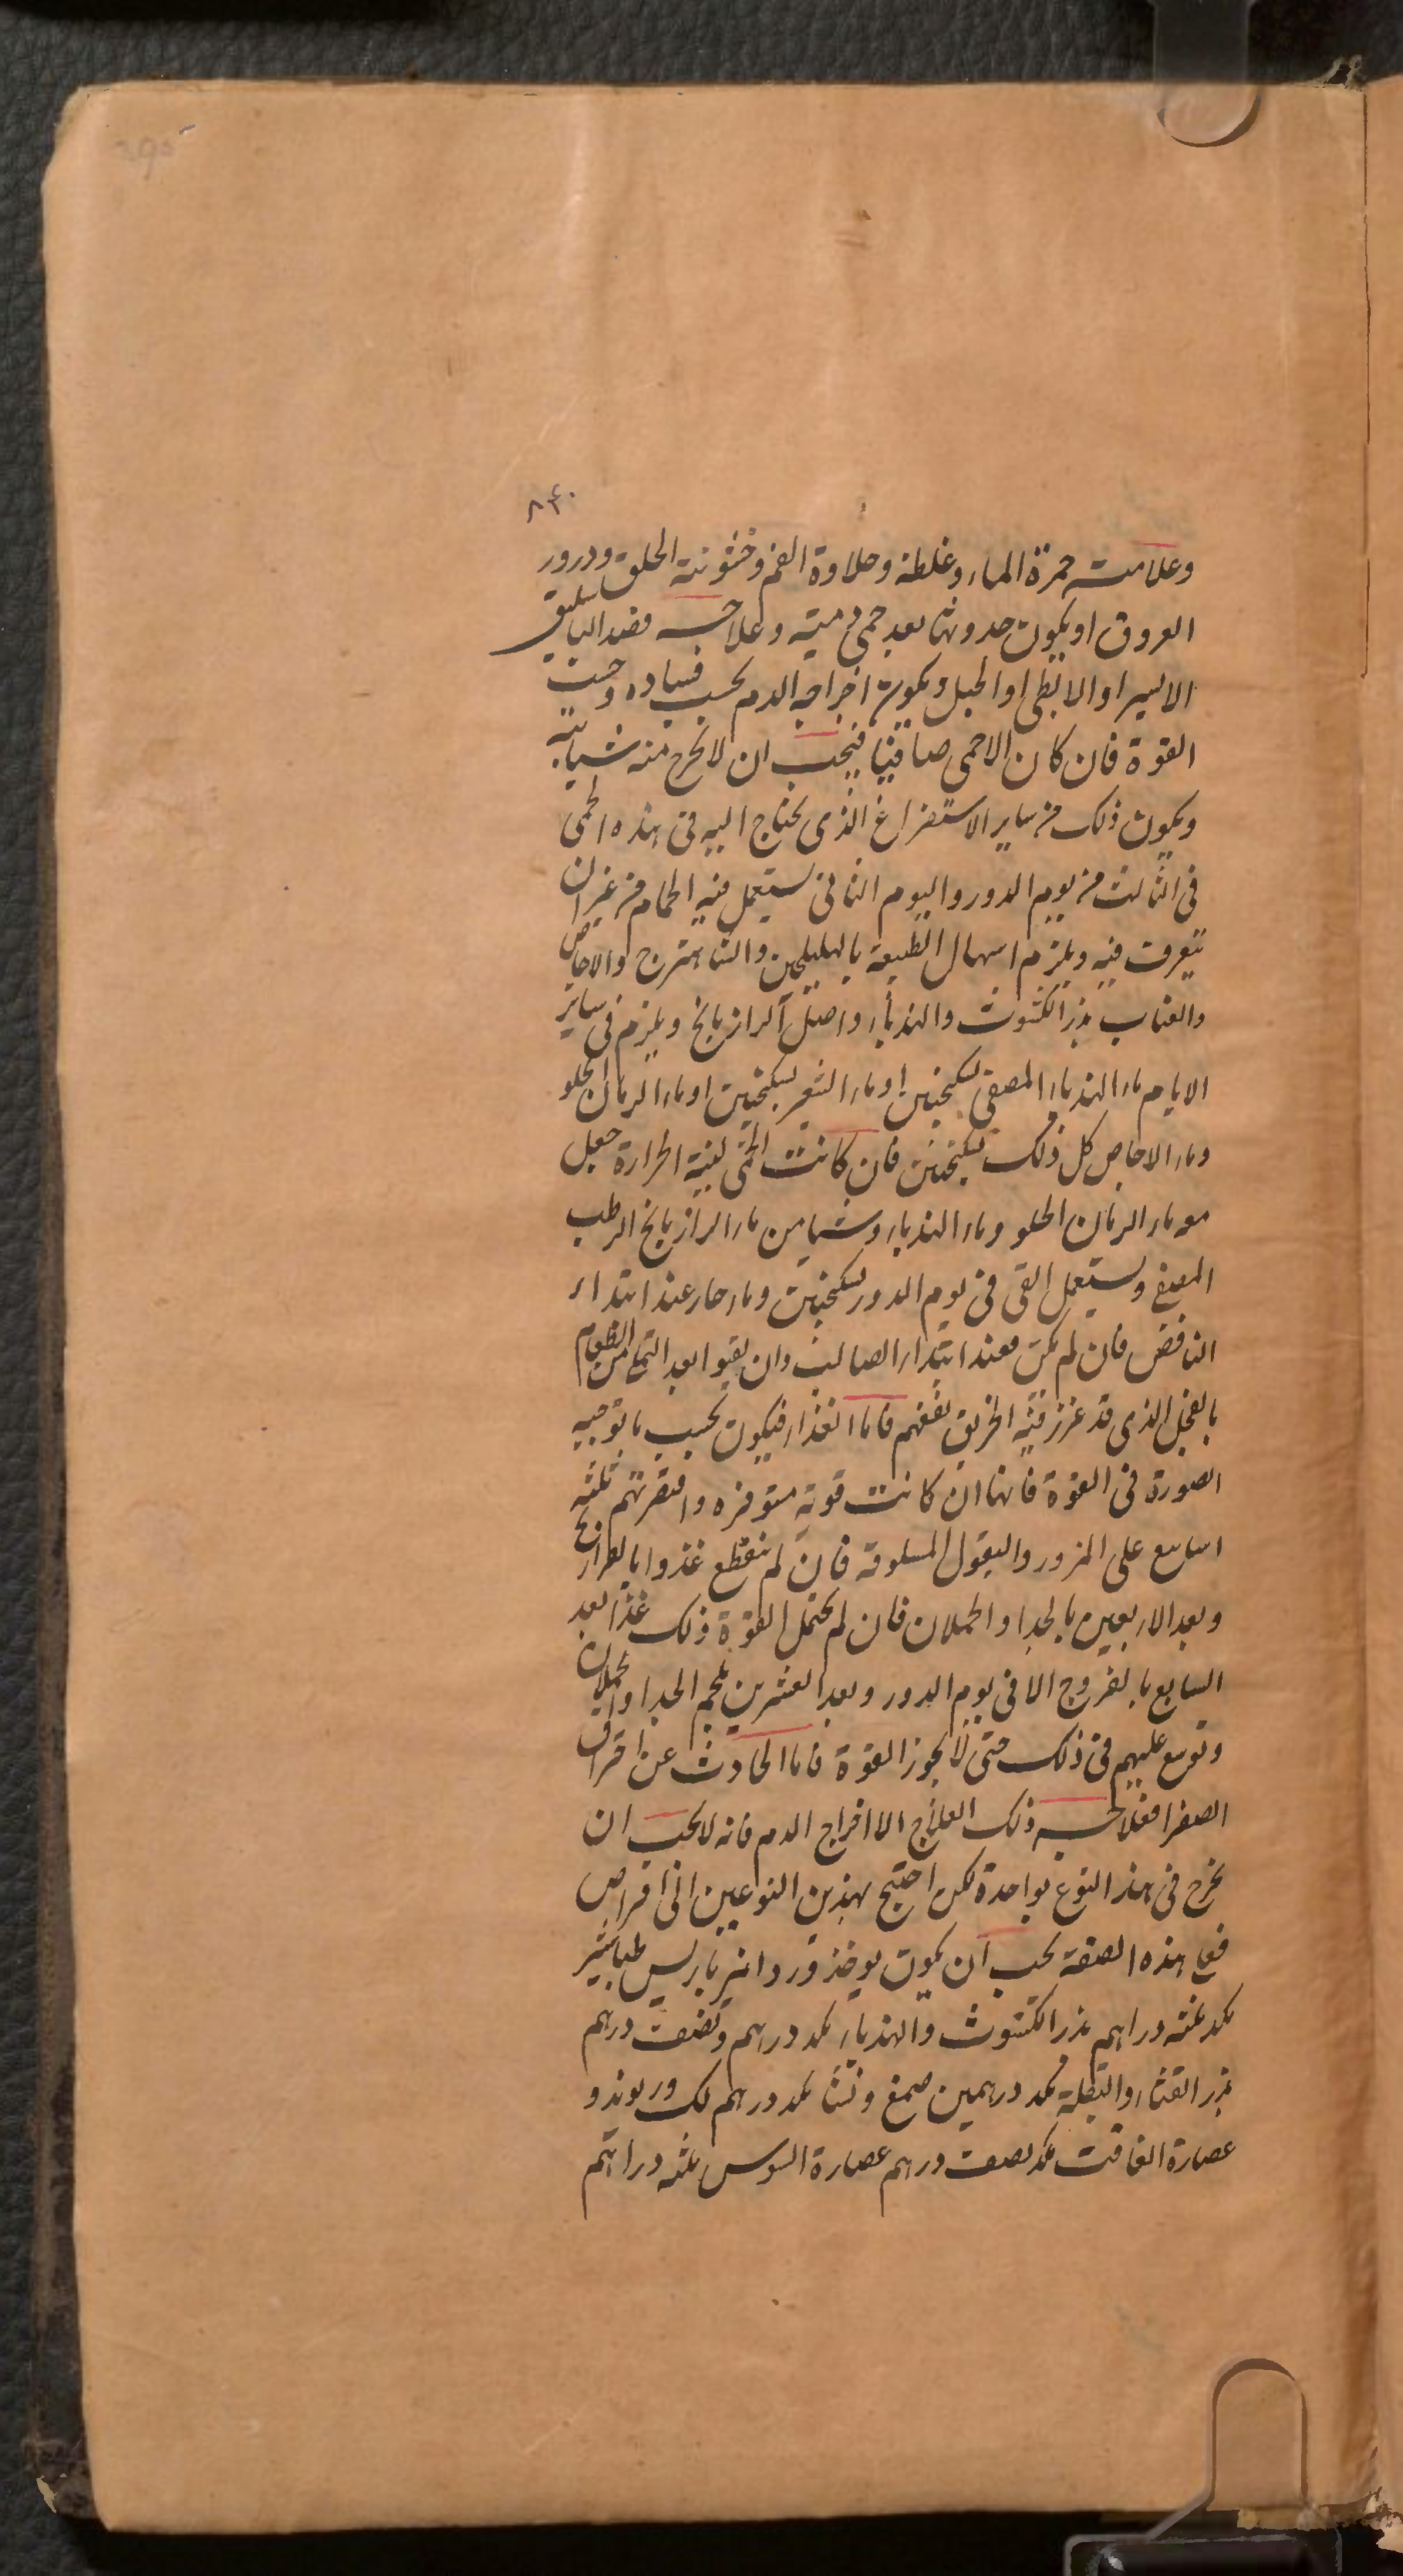 ٨٤٠
وعلامته حمرة الماء وغلظه وحلاوة الفم وخشونة الحلق ودرور
العروق او يكون حدوثها بعد حمى دمية وعلاجه فصد الباسليق
الايسر او الابطى او الحبل ويكون اخراجه الدم بحسب فساده وحسب
القوة فان كان الاحمى صافيا فيجب ان لا يخرج منه شيا بته
ويكون ذلك من ساير الاستفراغ الذى يحتاج اليه فى هذه الحمى
فى الثالث من يوم الدور واليوم الثانى يستعمل فيه الحمام من غير ان
يتعرق فيه ويلزم اسهال الطبيعة بالهليلجين والشاهترج والاجاص
والعناب بزر الكشوث والهندباء واصل الرازيانج ويلزم فى ساير
الايام ماء الهندباء المصفى بسكنجبين او ماء الشعير بسكنجبين او ماء الرمان الحلو
وماء الاجاص كل ذلك بسكنجبين فان كانت الحمى لينة الحرارة جعل
مع ماء الرمان الحلو وماء الهندباء وشيا من ماء الرازيانج الرطب
المصفى ويستعمل القى فى يوم الدور بسكنجبين وماء حار عند ابتداء
النافض فان لم يكن فعند ابتداء الصالب وان يقيوا بعد التملى من الطعام
بالفجل الذى قد غرز فيه الخربق نفعهم فاما الغذاء فيكون بحسب ما توجبه
الصورة فى القوة فانها ان كانت قوية متوفره واقتصر بهم ثلثه
اسابيع على المزور والبقول المسلوقة فان لم تنقطع غذوا بالفراريج
وبعد الاربعين بالجدا والحملان فان لم تحتمل القوة ذلك غذا بعد
السابع بالفروج الا فى يوم الدور وبعد العشرين بلحم الجدا والحملان
وتوسع عليهم فى ذلك حتى لا تخور القوة فاما الحادث عن احتراق
الصفرا فعلاجه ذلك العلاج الا اخراج الدم فانه لا يجب ان
يخرج فى هذا النوع بواحدة لكن احتيج بهذين النوعين الى اقراص
فعلى هذه الصفة يجب ان يكون يوخذ ورد انبرباريس طباشير
بكد ثلثه دراهم بزر الكشوث والهندباء بكد درهم ونصف درهم
بزر القثاء والبقلة بكد درهمين صمغ ونشا بكد درهم لك وريوند و
عصارة الغافت بكد نصف درهم عصارة السوس ثلثه دراهم